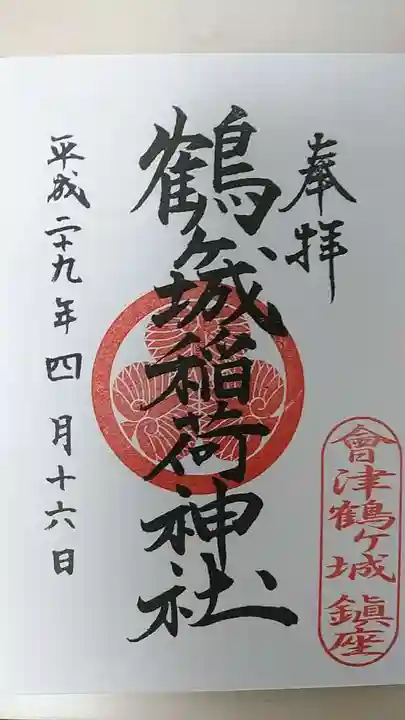 奉拝
會津鶴ヶ城 鎮座
鶴ヶ城稲荷神社
平成二十九年四月十六日